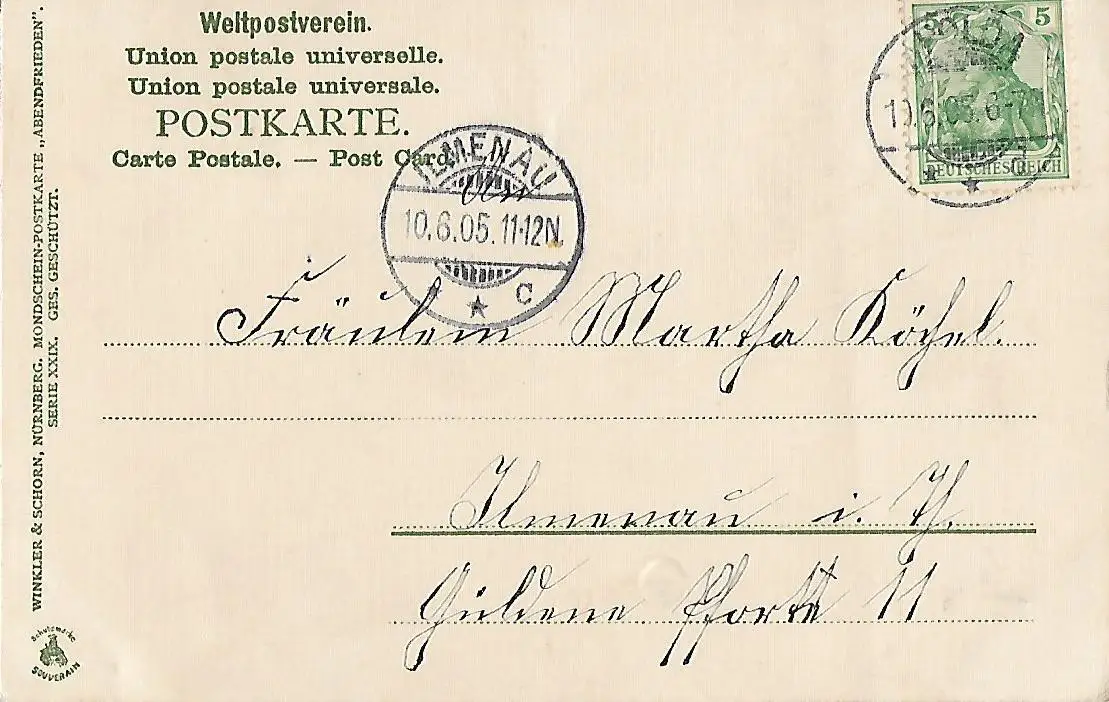 Weltpostverein.
Union postale universelle.
Union postale universale.
POSTKARTE.
Carte Postale. — Post Card.
5 5
10.6.05. 6-7
DEUTSCHES REICH
ILMENAU
10.6.05. 11-12N.
★ C
Fräulein Martha Köchel.
Ilmenau i. Th.
Güldene Pforte 11
WINKLER & SCHORN, NÜRNBERG. MONDSCHEIN-POSTKARTE „ABENDFRIEDEN".
SERIE XXIX. GES. GESCHÜTZT.
Schutzmarke
SOUVERAIN